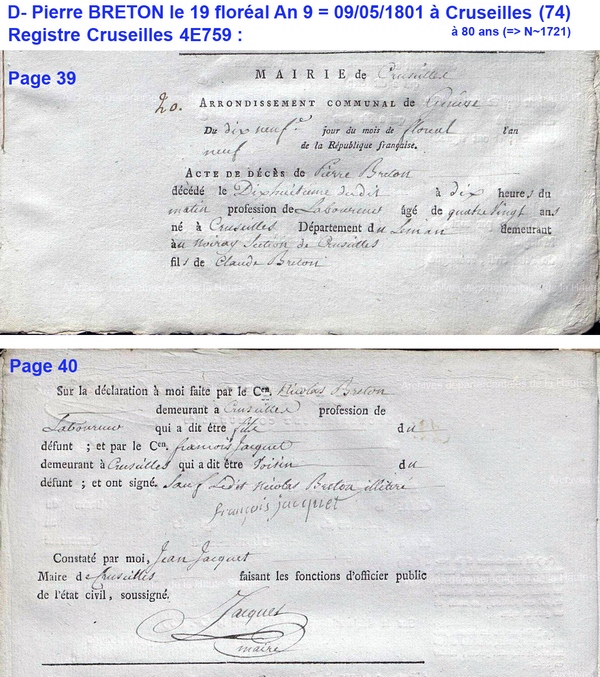 D- Pierre BRETON le 19 floréal An 9 = 09/05/1801 à Cruseilles (74)
Registre Cruseilles 4E759 :
à 80 ans (=> N~1721)
Page 39
MAIRIE de Cruseilles
20. ARRONDISSEMENT COMMUNAL de
Du dix neuf.e jour du mois de floreal l'an
neuf de la République française.
ACTE DE DÉCÈS de Pierre Breton
décédé le Dixhuitieme dudit à dix heures du
matin profession de Laboureur âgé de quatre vingt ans
né à Cruseilles Département du Leman demeurant
au Noiray Section de Cruseilles
fils de Claude Breton
Page 40
Sur la déclaration à moi faite par le Cen. Nicolas Breton
demeurant a Cruseilles profession de
Laboureur qui a dit être fils du
défunt ; et par le Cen. francois Jacquet
demeurant à Cruseilles qui a dit être Voisin du
défunt ; et ont signé. Sauf Ledit Nicolas Breton illitéré
françois jacquet
Constaté par moi, Jean Jacquet
Maire de Cruseilles faisant les fonctions d'officier public
de l'état civil, soussigné.
Jacquet
maire